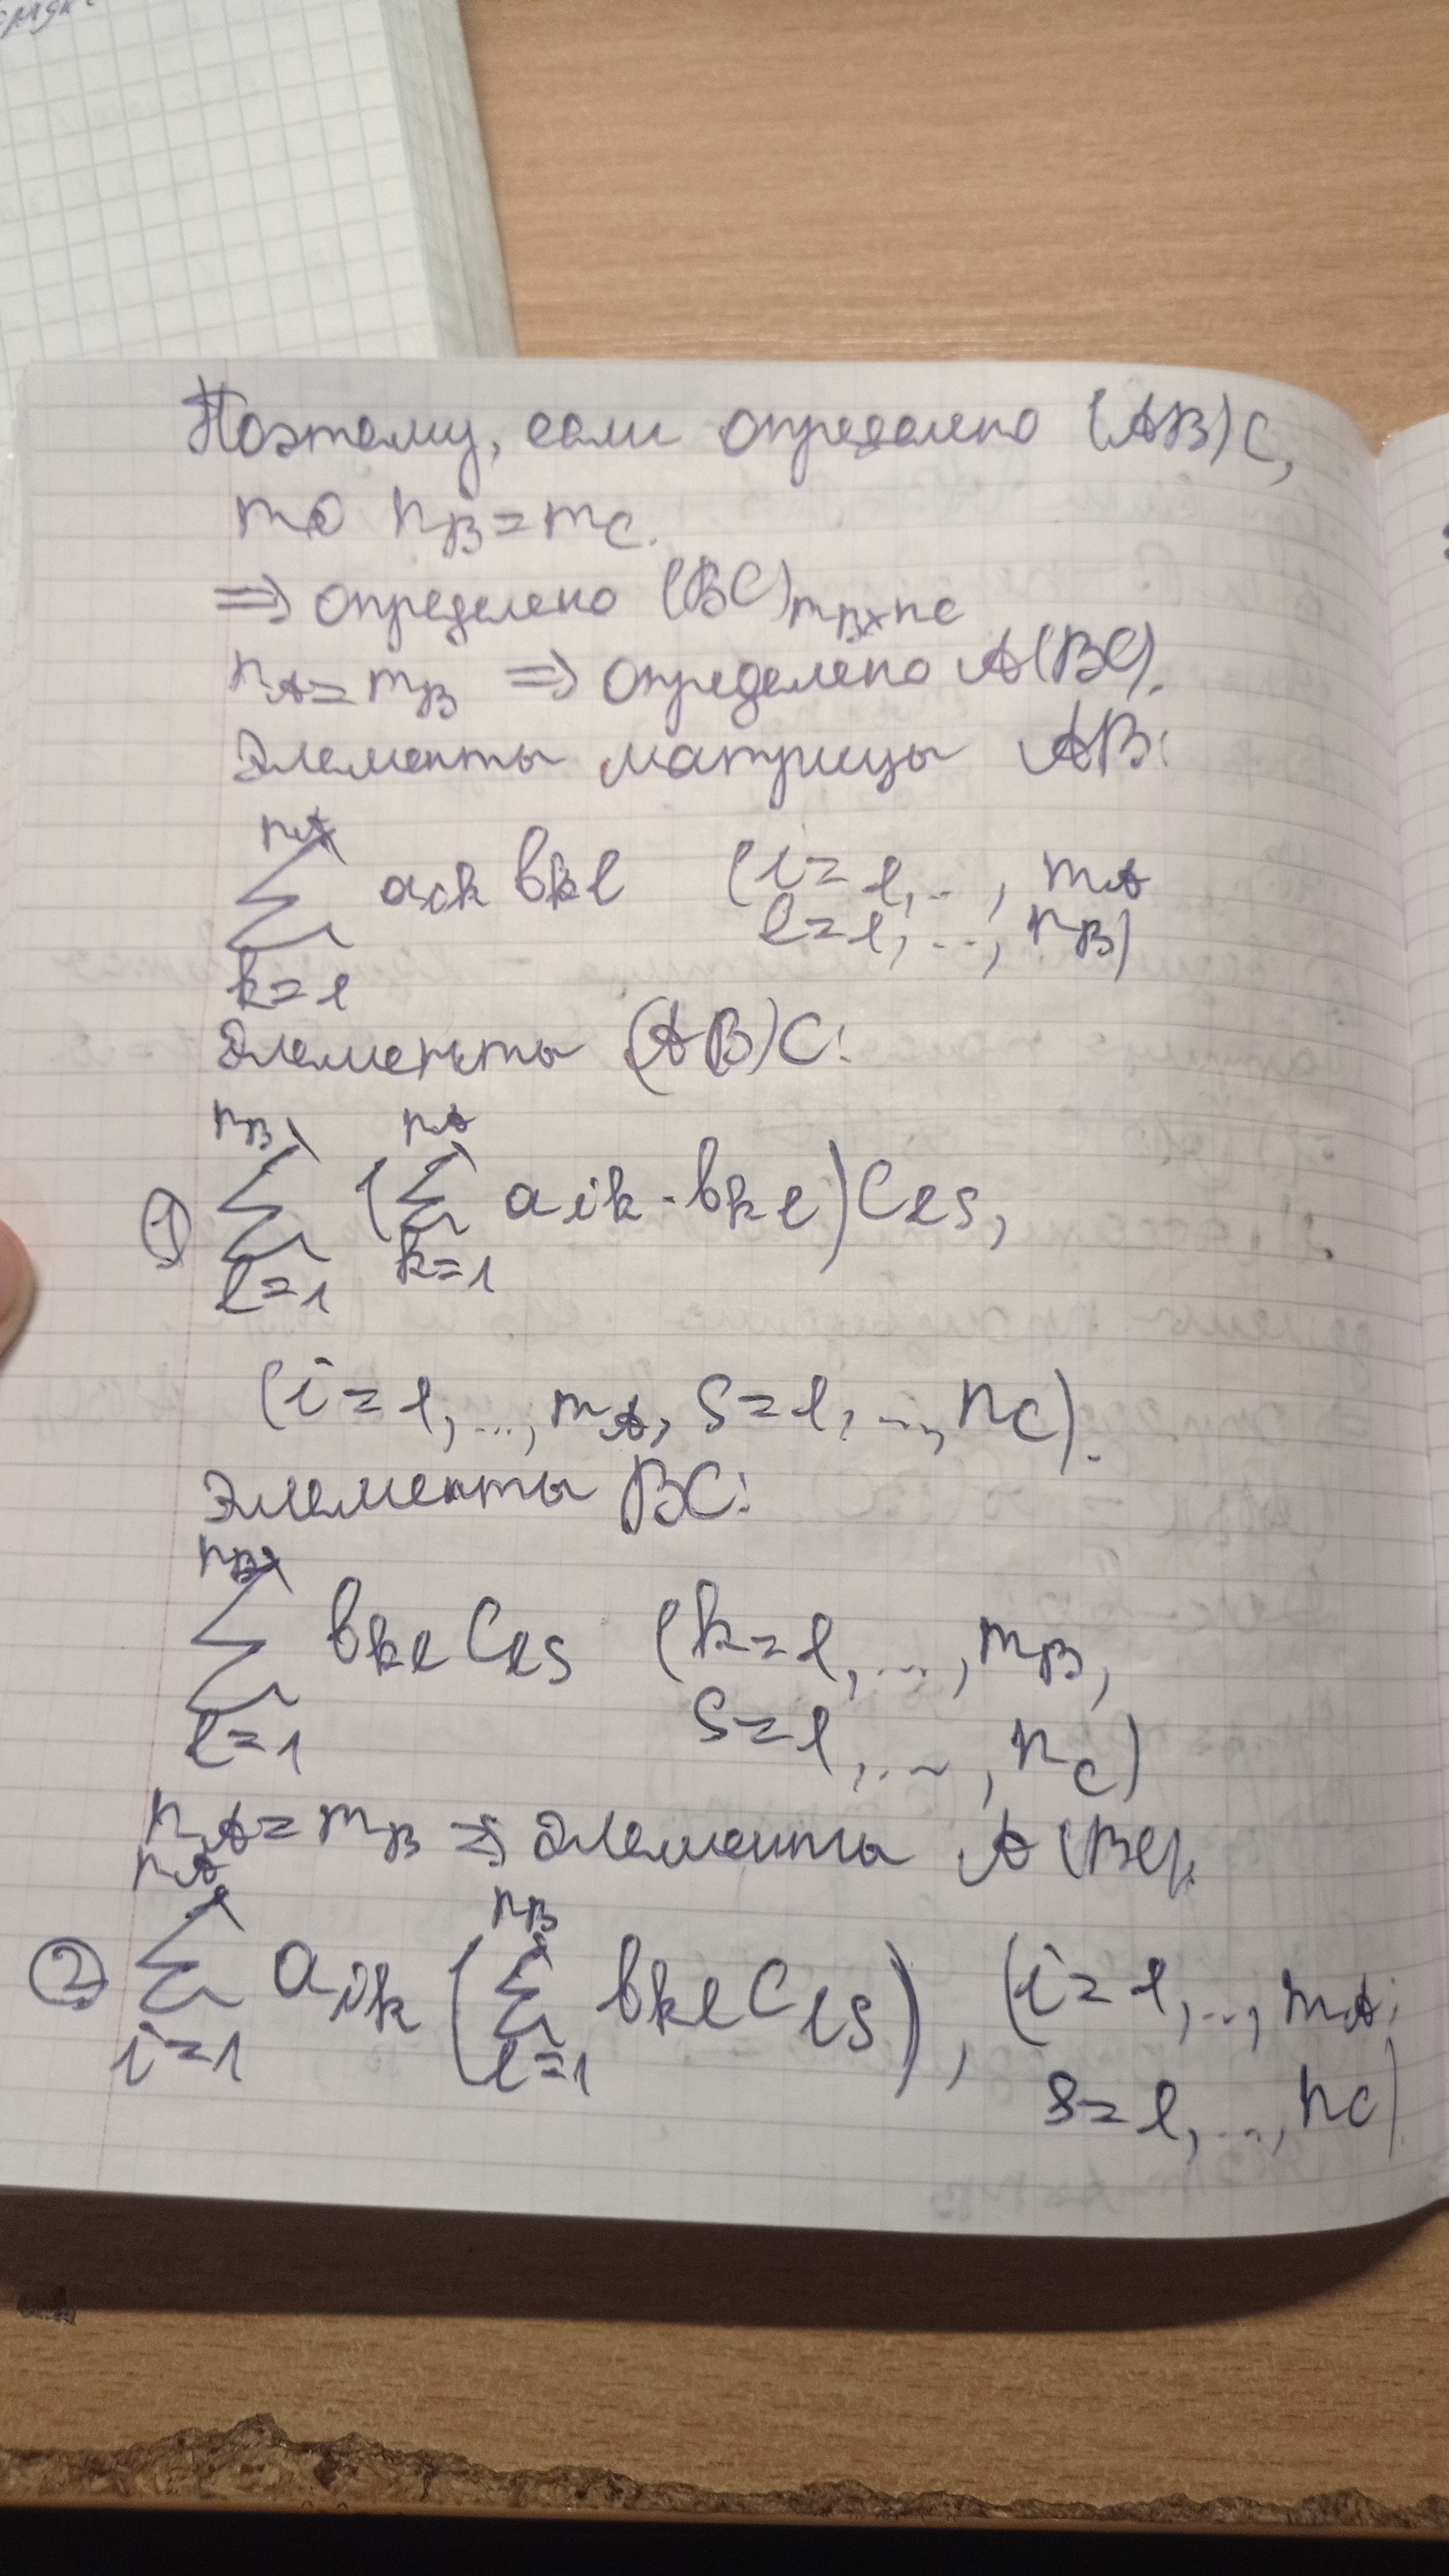 Поэтому, если определено (AB)C,
то n_B = m_C.
=> определено (BC)_{m_B×n_C}
n_A = m_B => определено A(BC).
Элементы матрицы AB:
∑_{k=1}^{n_A} a_{ik} b_{kl} (i=1,..., m_A
l=1,..., n_B)
Элементы (AB)C:
① ∑_{l=1}^{n_B} (∑_{k=1}^{n_A} a_{ik}·b_{kl}) C_{ls},
(i=1,..., m_A, s=1,..., n_C).
Элементы BC:
∑_{l=1}^{n_B} b_{kl} C_{ls} (k=1,..., m_B,
s=1,..., n_C)
n_A = m_B => элементы A(BC):
② ∑_{i=1}^{n_A} a_{ik} (∑_{l=1}^{n_B} b_{kl} C_{ls}), (i=1,..., m_A;
s=1,..., n_C).